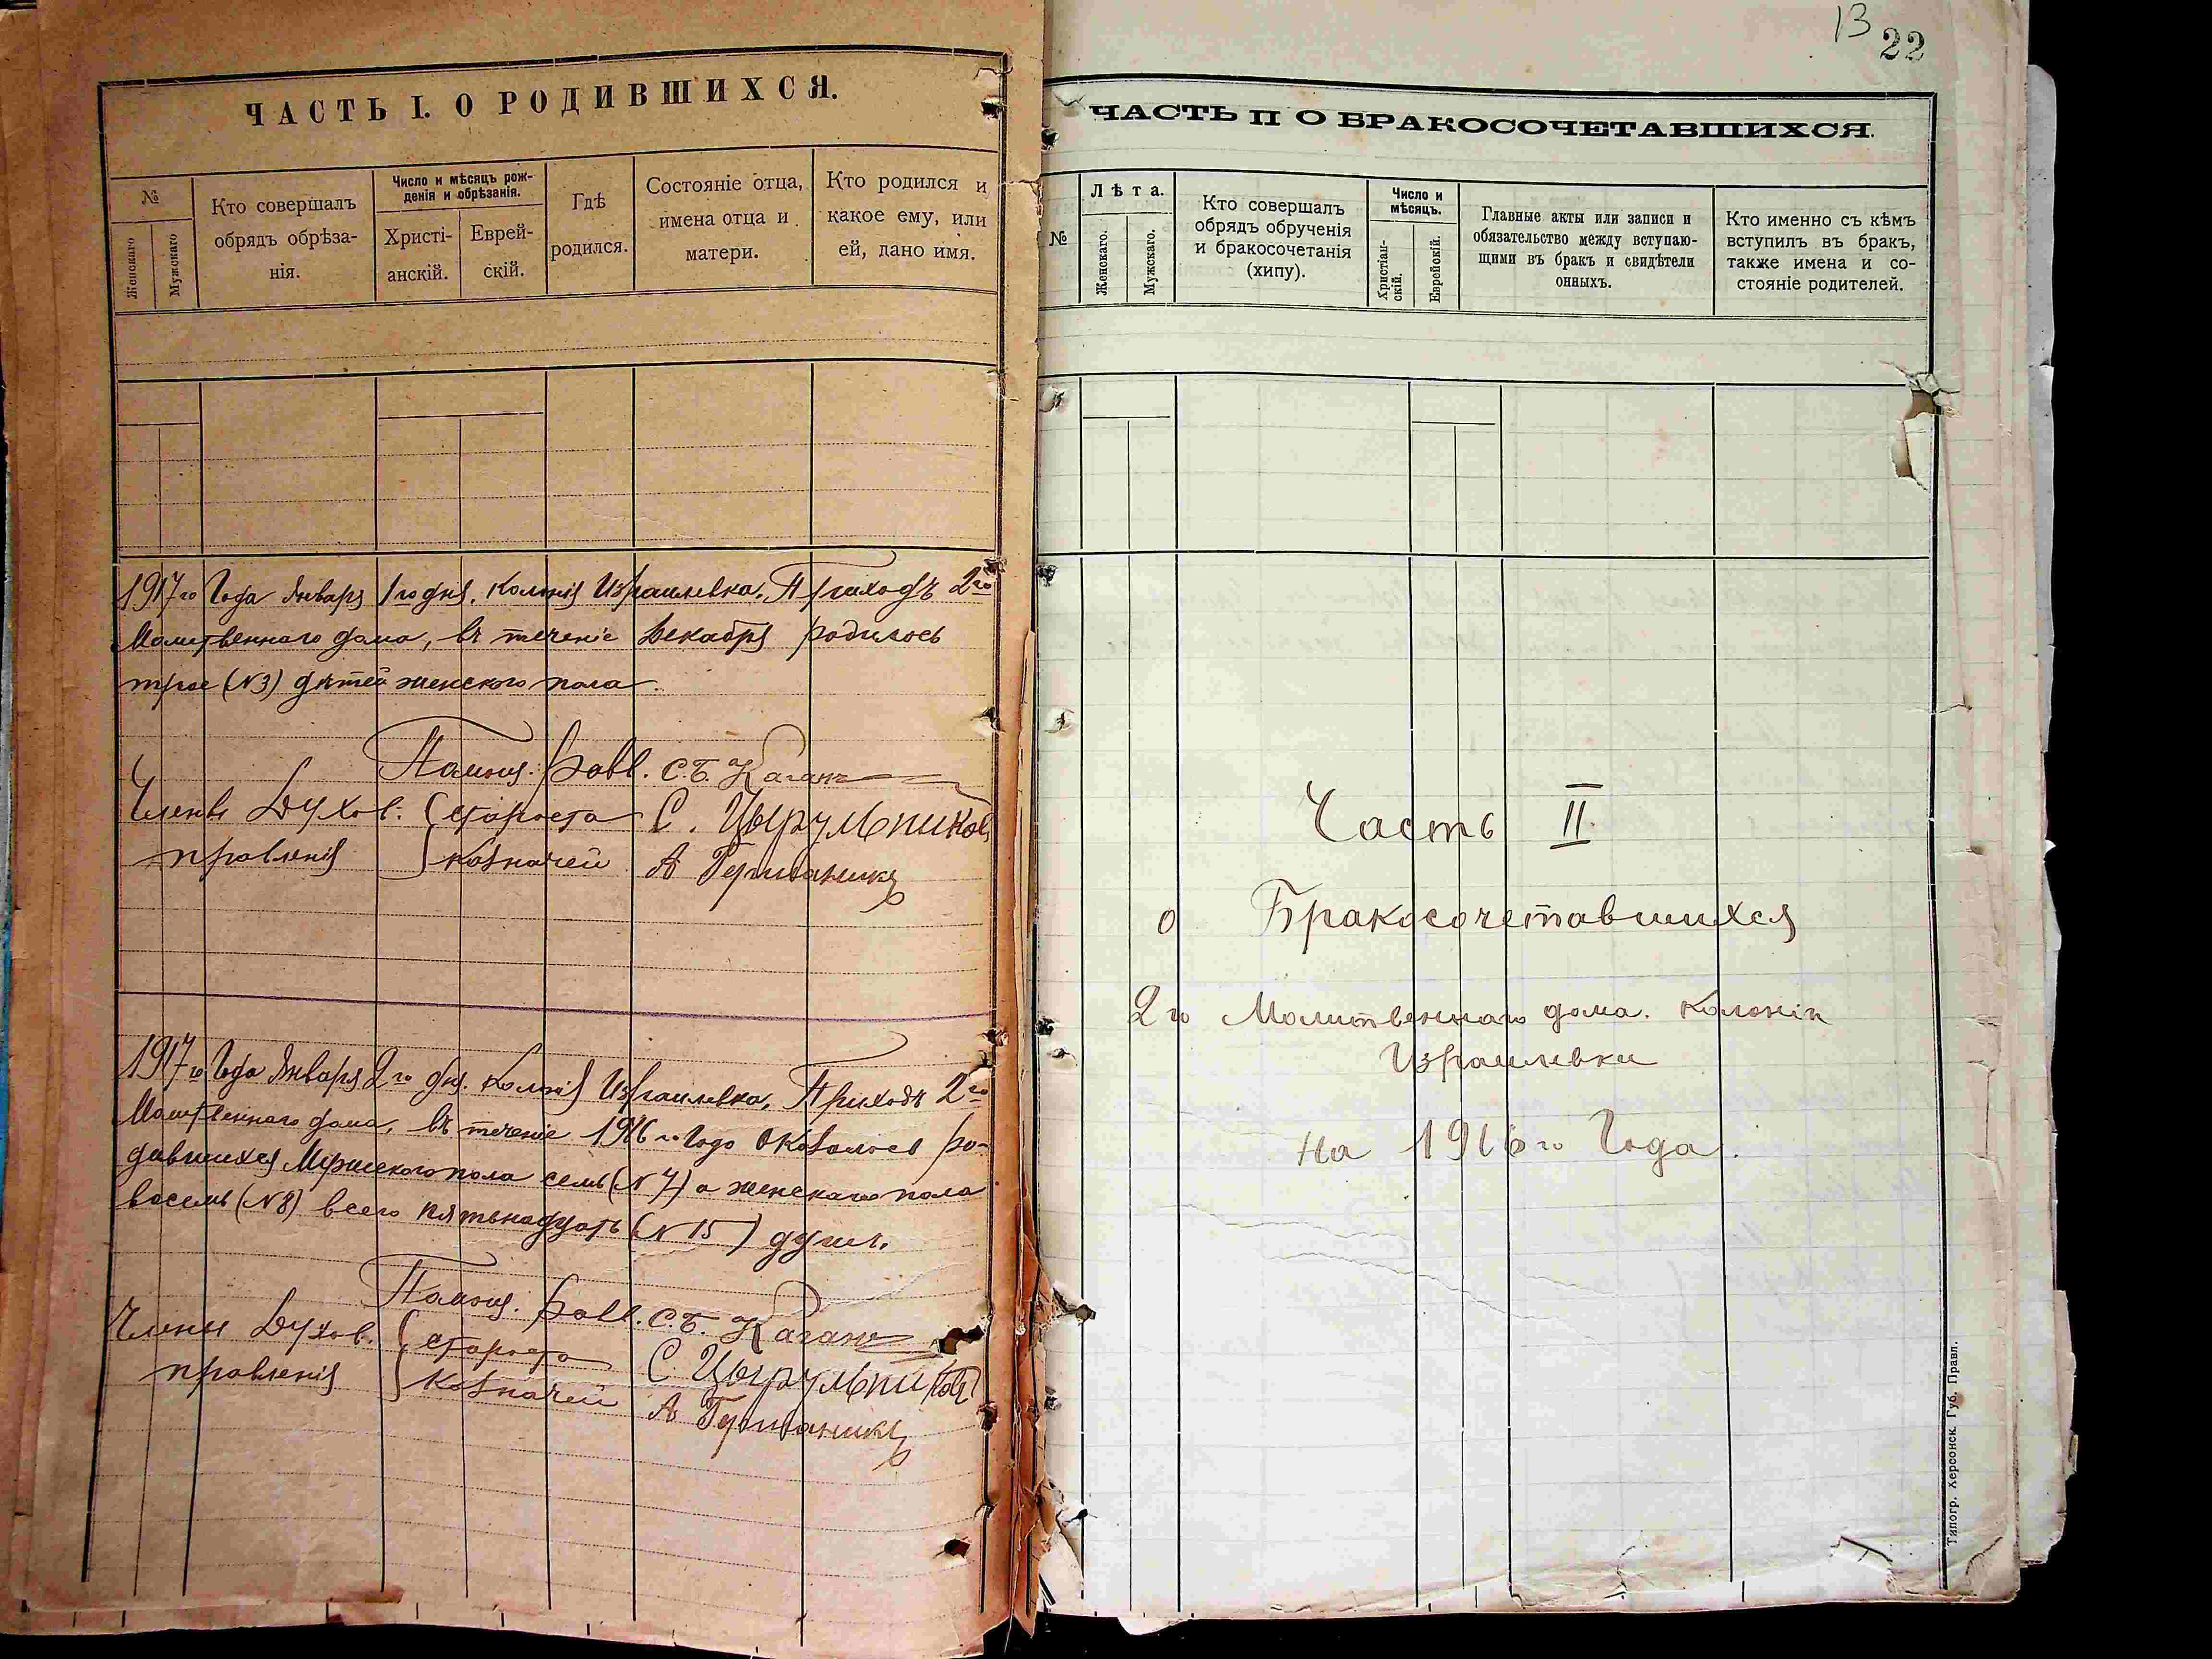 ЧАСТЬ I. О РОДИВШИХСЯ.
№
Женскаго
Мужскаго
Кто совершалъ
обрядъ обрѣза-
нія.
Число и мѣсяцъ рож-
денія и обрѣзанія.
Христі-
анскій.
Еврей-
скій.
Гдѣ
родился.
Состояніе отца,
имена отца и
матери.
Кто родился и
какое ему, или
ей, дано имя.
1917го Года Января 1го дня. Колонія Израилевка. Приходъ 2го
Молитвеннаго дома, въ теченіе Декабря родилось
трое (№3) дѣтей женскаго пола.
Помощ. Равв. С.Б. Каганъ
Члены Духов. Староста С. Цырульников
правленія Казначей А
1917го Года Января 2го дня. Колонія Израилевка. Приходъ 2го
Молитвеннаго дома, въ теченіе 1916го Года Оказалось ро-
дившихся Мужескаго пола семь (№7) а женскаго пола
восемь (№8) всего пятьнадцать (№15) душъ.
Помощ. Равв. С.Б. Каганъ
Члены Духов. Староста С. Цырульников
правленія Казначей А
13
22
ЧАСТЬ II О БРАКОСОЧЕТАВШИХСЯ.
№
Лѣта.
Женскаго.
Мужскаго.
Кто совершалъ
обрядъ обрученія
и бракосочетанія
(хипу).
Число и
мѣсяцъ.
Христіан-
скій.
Еврейскій.
Главные акты или записи и
обязательство между вступаю-
щими въ бракъ и свидѣтели
онныхъ.
Кто именно съ кѣмъ
вступилъ въ бракъ,
также имена и со-
стояніе родителей.
Часть II.
о Бракосочетавшихся
2го Молитвеннаго дома. Колоніи
Израилевки
На 1916го Года.
Типогр. Херсонск. Губ. Правл.